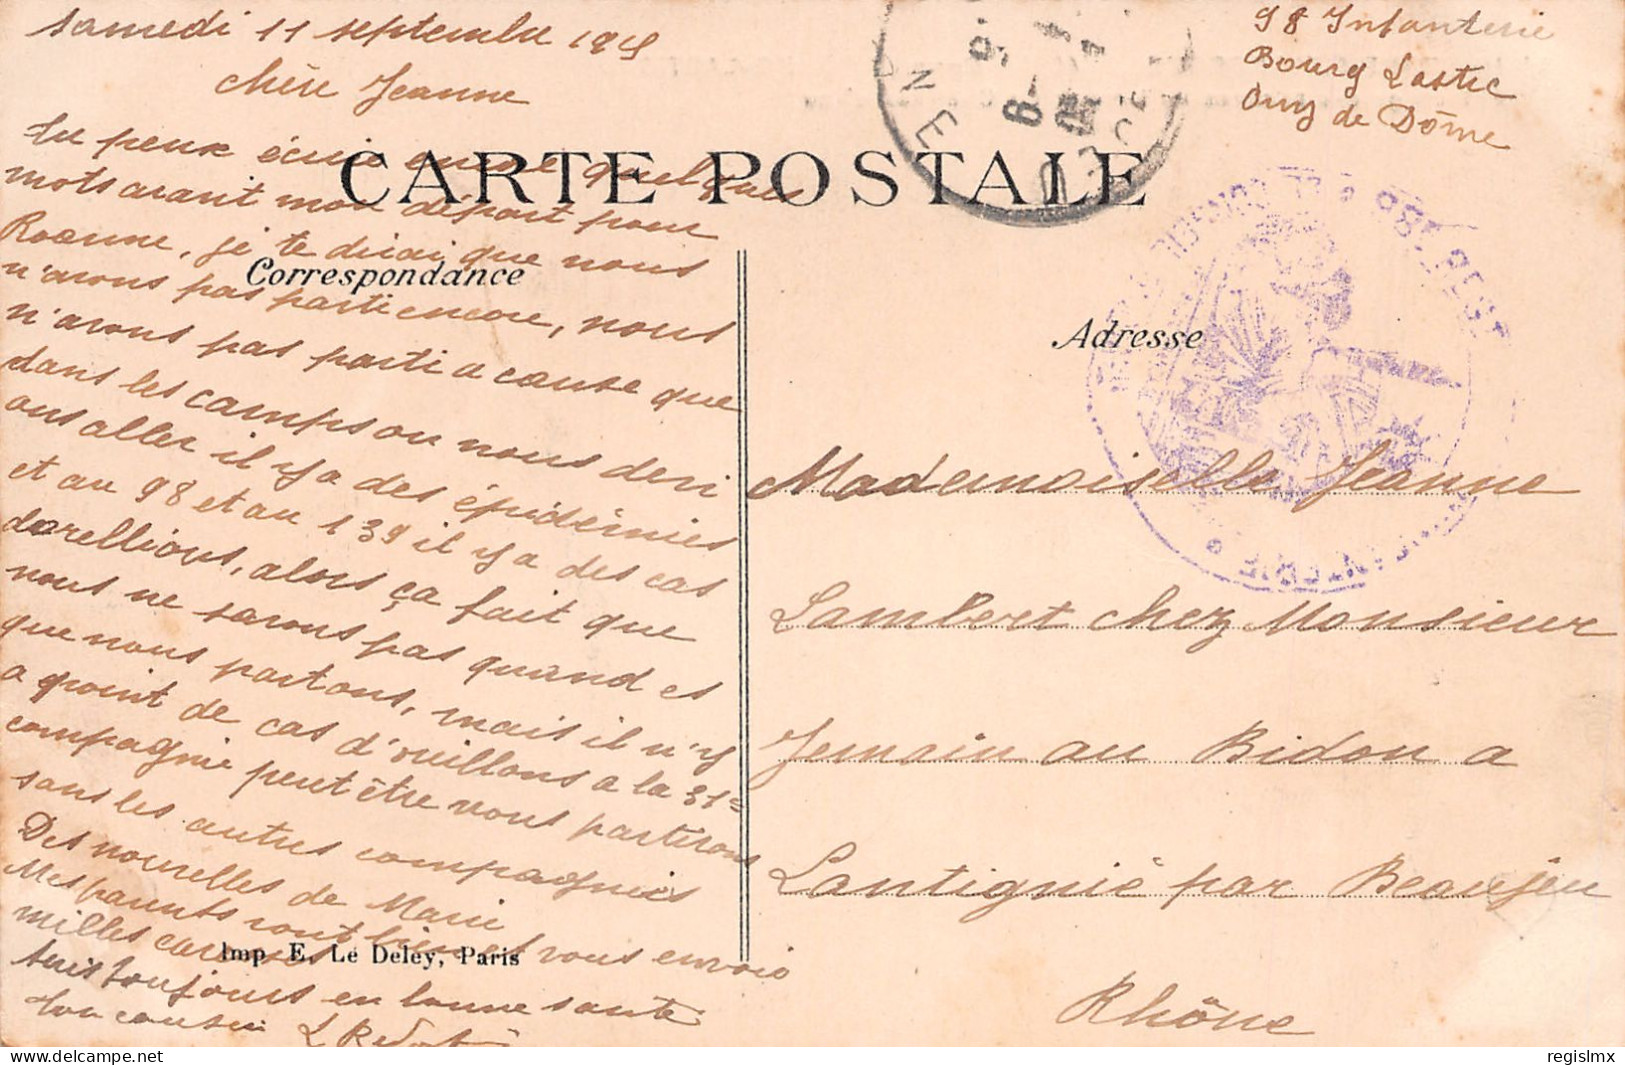 samedi 11 septembre 1915
chère Jeanne
tu peux écrire encore quelques
mots avant mon départ pour
Roanne, je te dirai que nous
n'avons pas parti encore, nous
n'avons pas parti a cause que
dans les camps ou nous deri
ons aller il y a des épidémies
et au 98 et au 139 il y a des cas
dorellions, alors ça fait que
nous ne savons pas quand es
que nous partons, mais il n'y
a point de cas d'oreillons a la 31e
compagnie peut être nous partirons
sans les autres compagnies
Des nouvelles de Marie
Mes parents vont bien et vous envois
milles caresses
suis toujours en bonne sante
ton cousin L
CARTE POSTALE
Correspondance
Imp. E. Le Deley, Paris
98 Infanterie
Bourg Lastic
Puy de Dôme
Adresse
Mademoiselle Jeanne
Lambert chez Monsieur
Jemain au Bidon a
Lantignié par Beaujeu
Rhône
regislmx